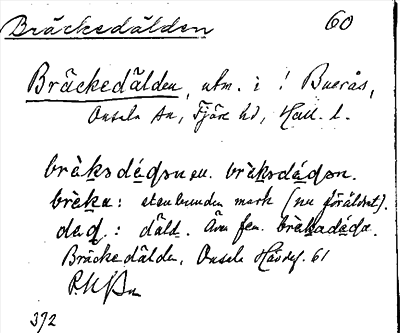 Bräckedälden 60
Bräckedälden, utm. i ! Buerås,
Onsala sn, Fjäre hd, Hall. l.
brèksdéqən el. brèksdéqən.
brèka: stenbunden mark (nu föråldrat).
deq.: däld. Även fem. brèkadéqa.
Bräckedälden, Onsala Hävdef. 61
372